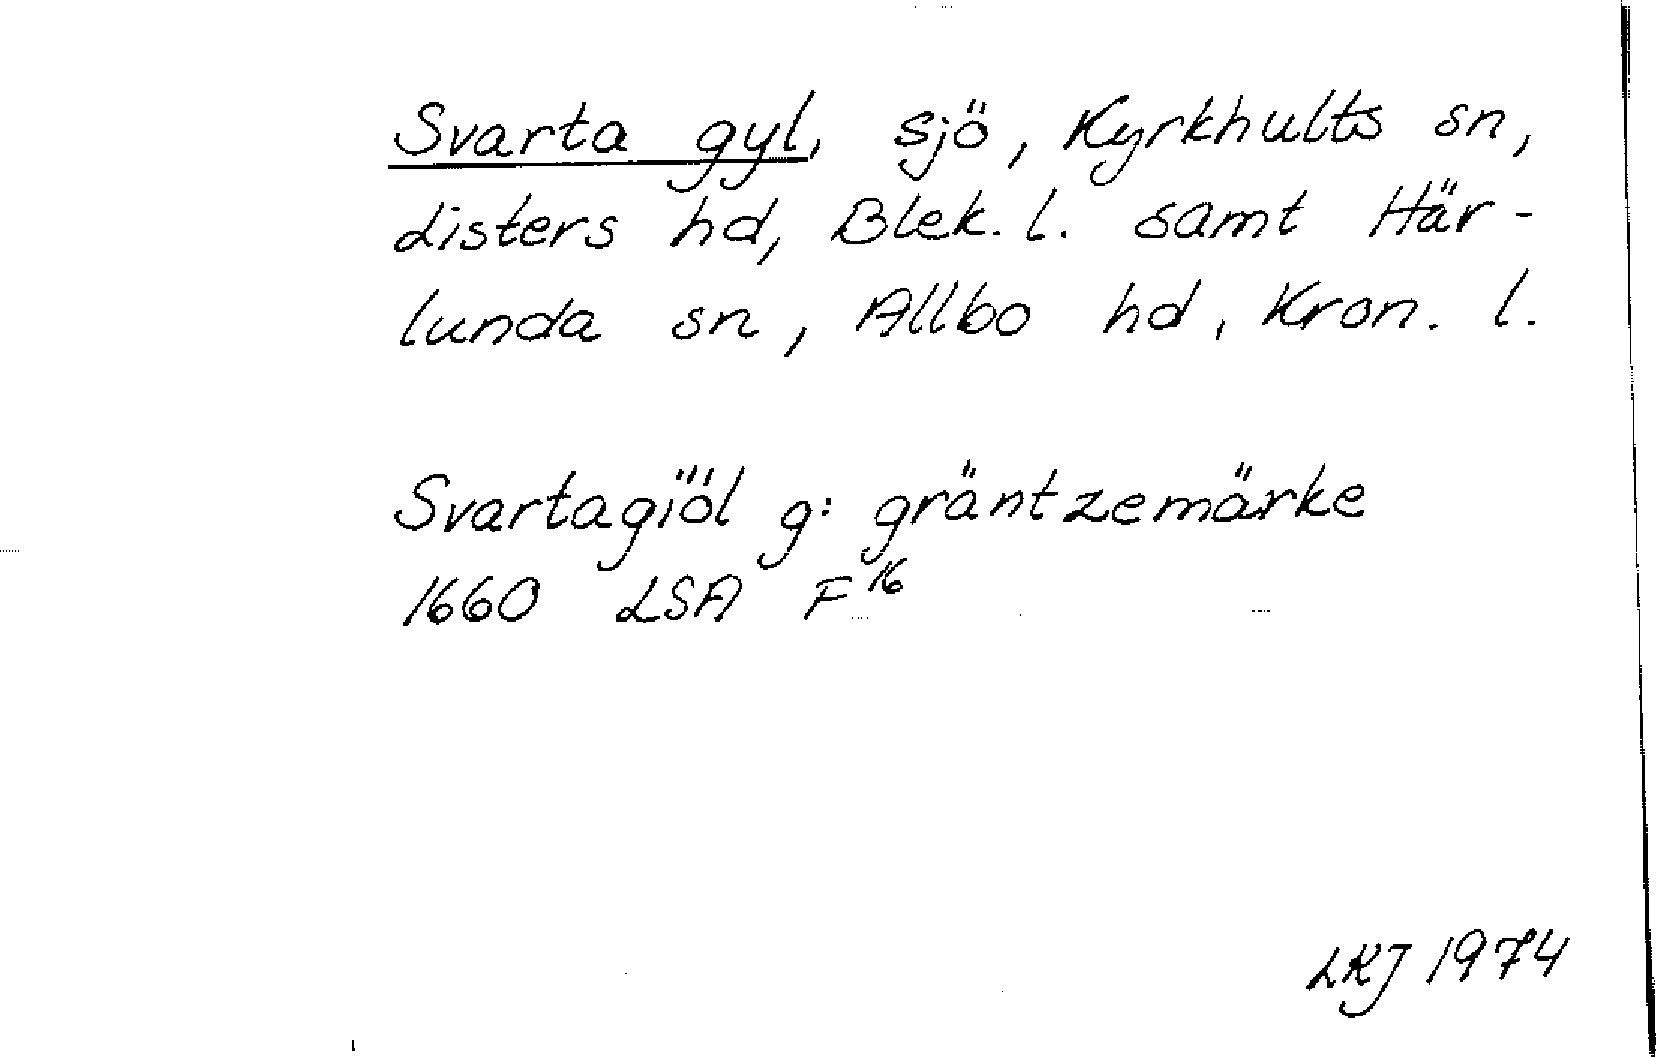 Svarta gyl, sjö, Kyrkhults sn,
Listers hd, Blek. l. samt Här-
lunda sn, Allbo hd, Kron. l.
Svartagiöl g: gräntzemärke
1660 LSA F¹⁶
LKJ 1974